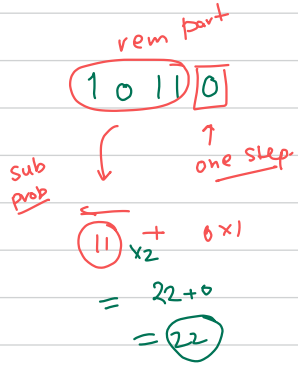 rem part
1 0 1 1 0
one step.
sub
prob
11 x2 + 0x1
= 22+0
= 22